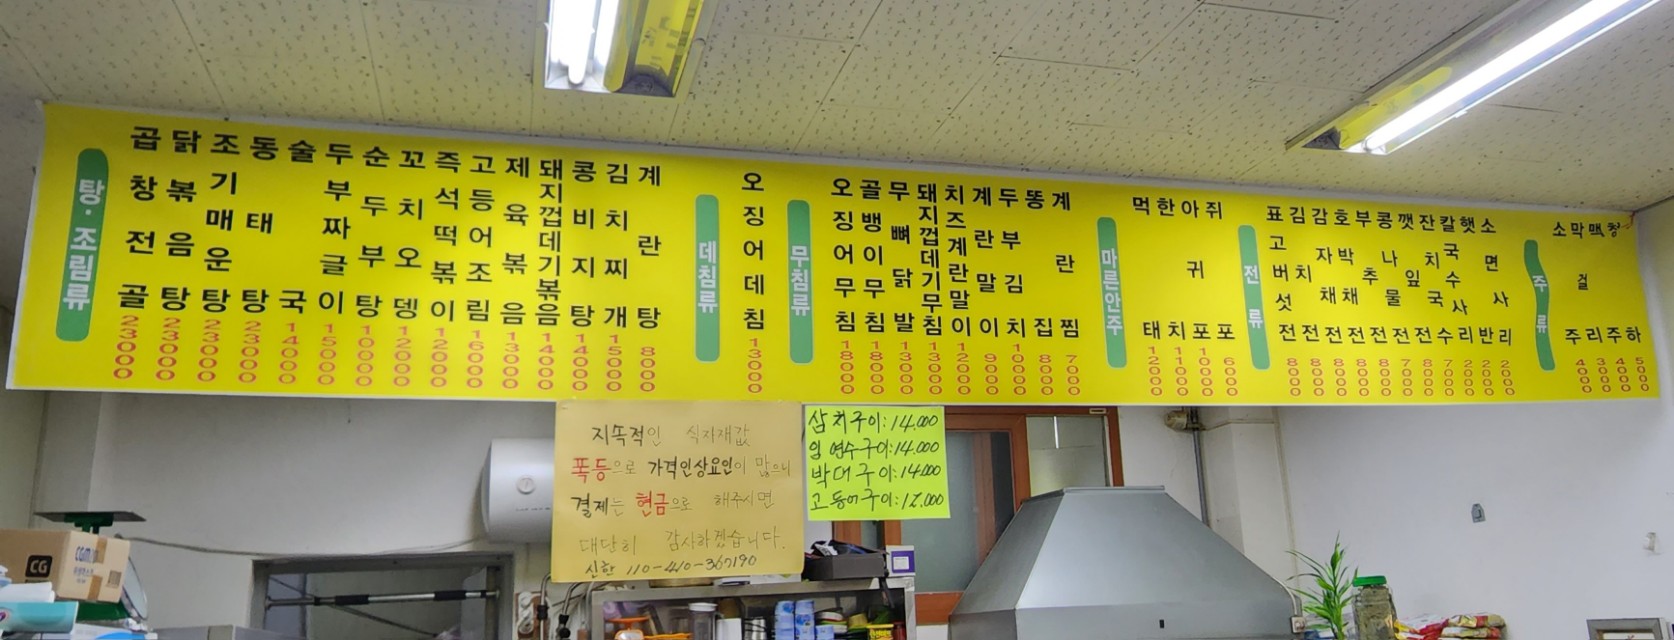 탕·조림류
곱창전골 23000
닭볶음탕 23000
조기매운탕 23000
동태탕 23000
술국 14000
두부짜글이 15000
순두부탕 10000
꼬치오뎅 12000
즉석떡볶이 12000
고등어조림 16000
제육볶음 13000
돼지껍데기볶음 14000
콩비지탕 14000
김치찌개 15000
계란탕 8000
데침류
오징어데침 13000
무침류
오징어무침 18000
골뱅이무침 18000
무뼈닭발 13000
돼지껍데기무침 13000
치즈계란말이 12000
계란말이 9000
두부김치 10000
똥집 8000
계란찜 7000
마른안주
먹태 12000
한치 11000
아귀포 10000
쥐포 6000
전류
표고버섯전 8000
김치전 8000
감자채전 8000
호박채전 8000
부추전 8000
콩나물전 7000
깻잎전 8000
잔치국수 7000
칼국수사리 2000
햇반 2000
소면사리 2000
주류
소주 4000
막걸리 3000
맥주 4000
청하 5000
지속적인 식자재값
폭등으로 가격인상요인이 많으니
결제는 현금으로 해주시면
대단히 감사하겠습니다.
신한 110-410-367190
삼치구이:14.000
임연수구이:14.000
박대구이:14.000
고등어구이:12.000
CG